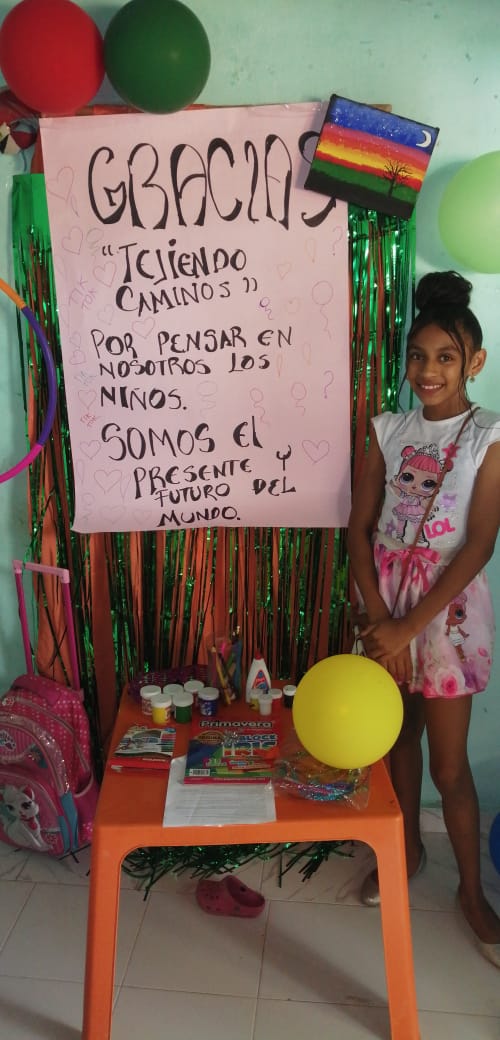 GRACIAS
"TEJIENDO
CAMINOS"
POR PENSAR EN
NOSOTROS LOS
NIÑOS.
SOMOS El
PRESENTE Y
FUTURO DEL
MUNDO.
TIK
TOK
LOL
Primavera
BLOCK
IRIS